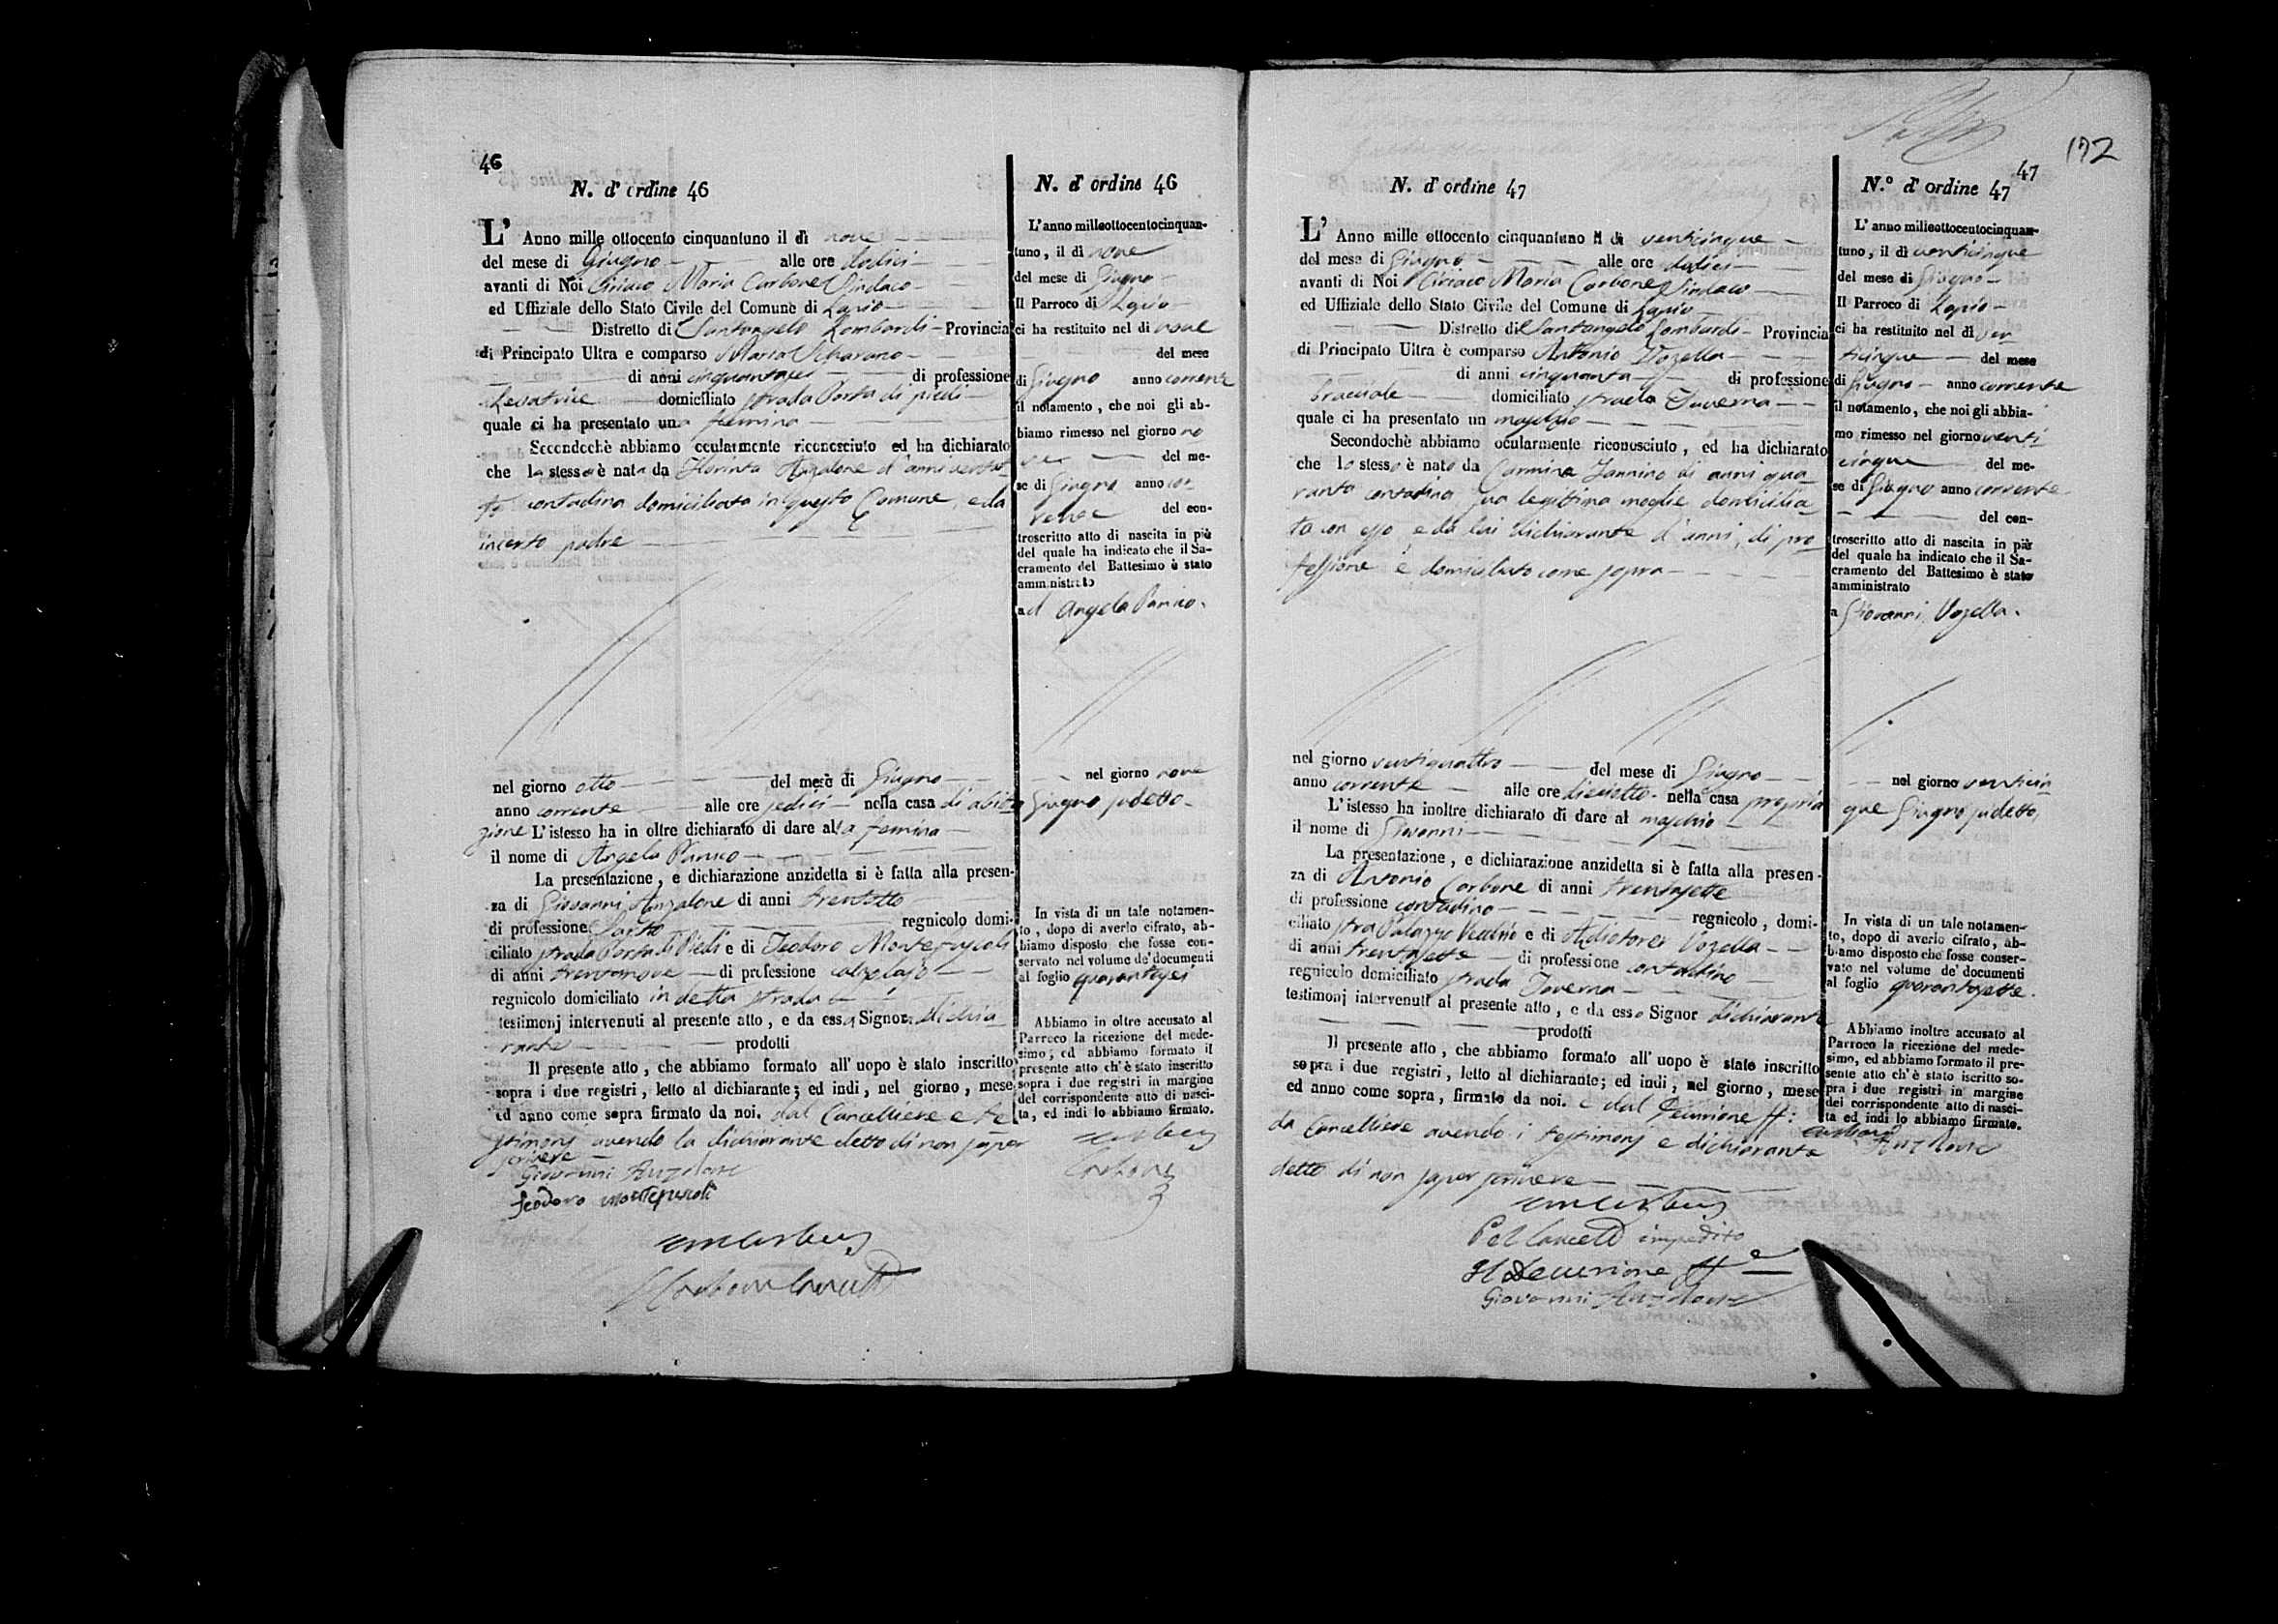 46
N. d' ordine 46
L' Anno mille ottocento cinquantuno il dì nove
del mese di Giugno alle ore dodici
avanti di Noi Ciriaco Maria Carbone Sindaco
ed Uffiziale dello Stato Civile del Comune di Lapio
Distretto di Santangelo Lombardi Provincia
di Principato Ultra e comparso Maria Scharano
di anni cinquantasei di professione
Levatrice domiciliato strada Porta di piedi
quale ci ha presentato una femina
Secondochè abbiamo ocularmente riconosciuto ed ha dichiarato
che la stessa è nata da Florinta Anzalone d'anni
contadina domiciliata in questo Comune, e da
incerto padre
nel giorno otto del mese di Giugno
anno corrente alle ore sedici nella casa di abita
zione L'istesso ha in oltre dichiarato di dare alla femina
il nome di Angela Panico
La presentazione, e dichiarazione anzidetta si è fatta alla presen-
za di Giovanni Anzalone di anni trentotto
di professione Sarto regnicolo domi-
ciliato strada Porta di Piedi e di Teodoro Montefuscoli
di anni trentanove di professione calzolajo
regnicolo domiciliato in detta strada
testimonj intervenuti al presente atto, e da essa Signora dichia
rante prodotti
Il presente atto, che abbiamo formato all' uopo è stato inscritto
sopra i due registri, letto al dichiarante; ed indi, nel giorno, mese
ed anno come sopra firmato da noi. dal Cancelliere e te
stimonj avendo la dichiarante detto di non saper
scrivere
Giovanni Anzalone
Teodoro Montefuscoli
N. d' ordine 46
L'anno milleottocentocinquan-
tuno, il dì nove
del mese di Giugno
Il Parroco di Lapio
ci ha restituito nel dì nove
del mese
di Giugno anno corrente
il notamento, che noi gli ab-
biamo rimesso nel giorno no
ve del me-
se di Giugno anno cor
rente del con-
troscritto atto di nascita in più
del quale ha indicato che il Sa-
cramento del Battesimo è stato
amministrato
ad Angela Panico.
nel giorno nove
Giugno sudetto
In vista di un tale notamen-
to, dopo di averlo cifrato, ab-
biamo disposto che fosse con-
servato nel volume de' documenti
al foglio quarantasei
Abbiamo in oltre accusato al
Parroco la ricezione del mede-
simo; ed abbiamo formato il
presente atto ch' è stato inscritto
sopra i due registri in margine
del corrispondente atto di nasci-
ta, ed indi lo abbiamo firmato.
Carbone
172
47
N. d' ordine 47
L' Anno mille ottocento cinquantuno il dì venticinque
del mese di Giugno alle ore dodici
avanti di Noi Ciriaco Maria Carbone Sindaco
ed Uffiziale dello Stato Civile del Comune di Lapio
Distretto di Santangelo Lombardi Provincia
di Principato Ultra è comparso Antonio Vozella
di anni cinquanta di professione
bracciale domiciliato strada Taverna
quale ci ha presentato un maschio
Secondochè abbiamo ocularmente riconosciuto, ed ha dichiarato
che lo stesso è nato da Carmina Iannino di anni qua
ranta contadina sua legittima moglie domicilia
ta con esso e da lui dichiarante d'anni, di pro
fessione e domiciliato come sopra
nel giorno ventiquattro del mese di Giugno
anno corrente alle ore diciotto nella casa propria
L'istesso ha inoltre dichiarato di dare al maschio
il nome di Giovanni
La presentazione, e dichiarazione anzidetta si è fatta alla presen-
za di Antonio Carbone di anni trentasette
di professione contadino regnicolo, domi-
ciliato stra Palazzo Vecchio e di Vozella
di anni trentasette di professione contadino
regnicolo domiciliato strada Taverna
testimonj intervenuti al presente atto, e da esso Signor dichiarante
prodotti
Il presente atto, che abbiamo formato all' uopo è stato inscritto
sopra i due registri, letto al dichiarante; ed indi, nel giorno, mese
ed anno come sopra, firmato da noi. e dal Decurione ff:
da Cancelliere avendo i testimonj e dichiarante
detto di non saper scrivere
Pel Cancell impedito
Il Decurione ff
Giovanni Anzalone
N.° d' ordine 47
L' anno milleottocentocinquan-
tuno, il dì venticinque
del mese di Giugno
Il Parroco di Lapio
ci ha restituito nel dì ven
ticinque del mese
di Giugno anno corrente
il notamento, che noi gli abbia-
mo rimesso nel giorno venti
cinque del me-
se di Giugno anno corrente
del con-
troscritto atto di nascita in più
del quale ha indicato che il Sa-
cramento del Battesimo è stato
amministrato
a Giovanni Vozella.
nel giorno venticin
que Giugno sudetto
In vista di un tale notamen-
to, dopo di averlo cifrato, ab-
biamo disposto che fosse conser-
vato nel volume de' documenti
al foglio quarantasette.
Abbiamo inoltre accusato al
Parroco la ricezione del mede-
simo, ed abbiamo formato il pre-
sente atto ch' è stato iscritto so-
pra i due registri in margine
del corrispondente atto di nasci-
ta ed indi lo abbiamo firmato.
Anzalone